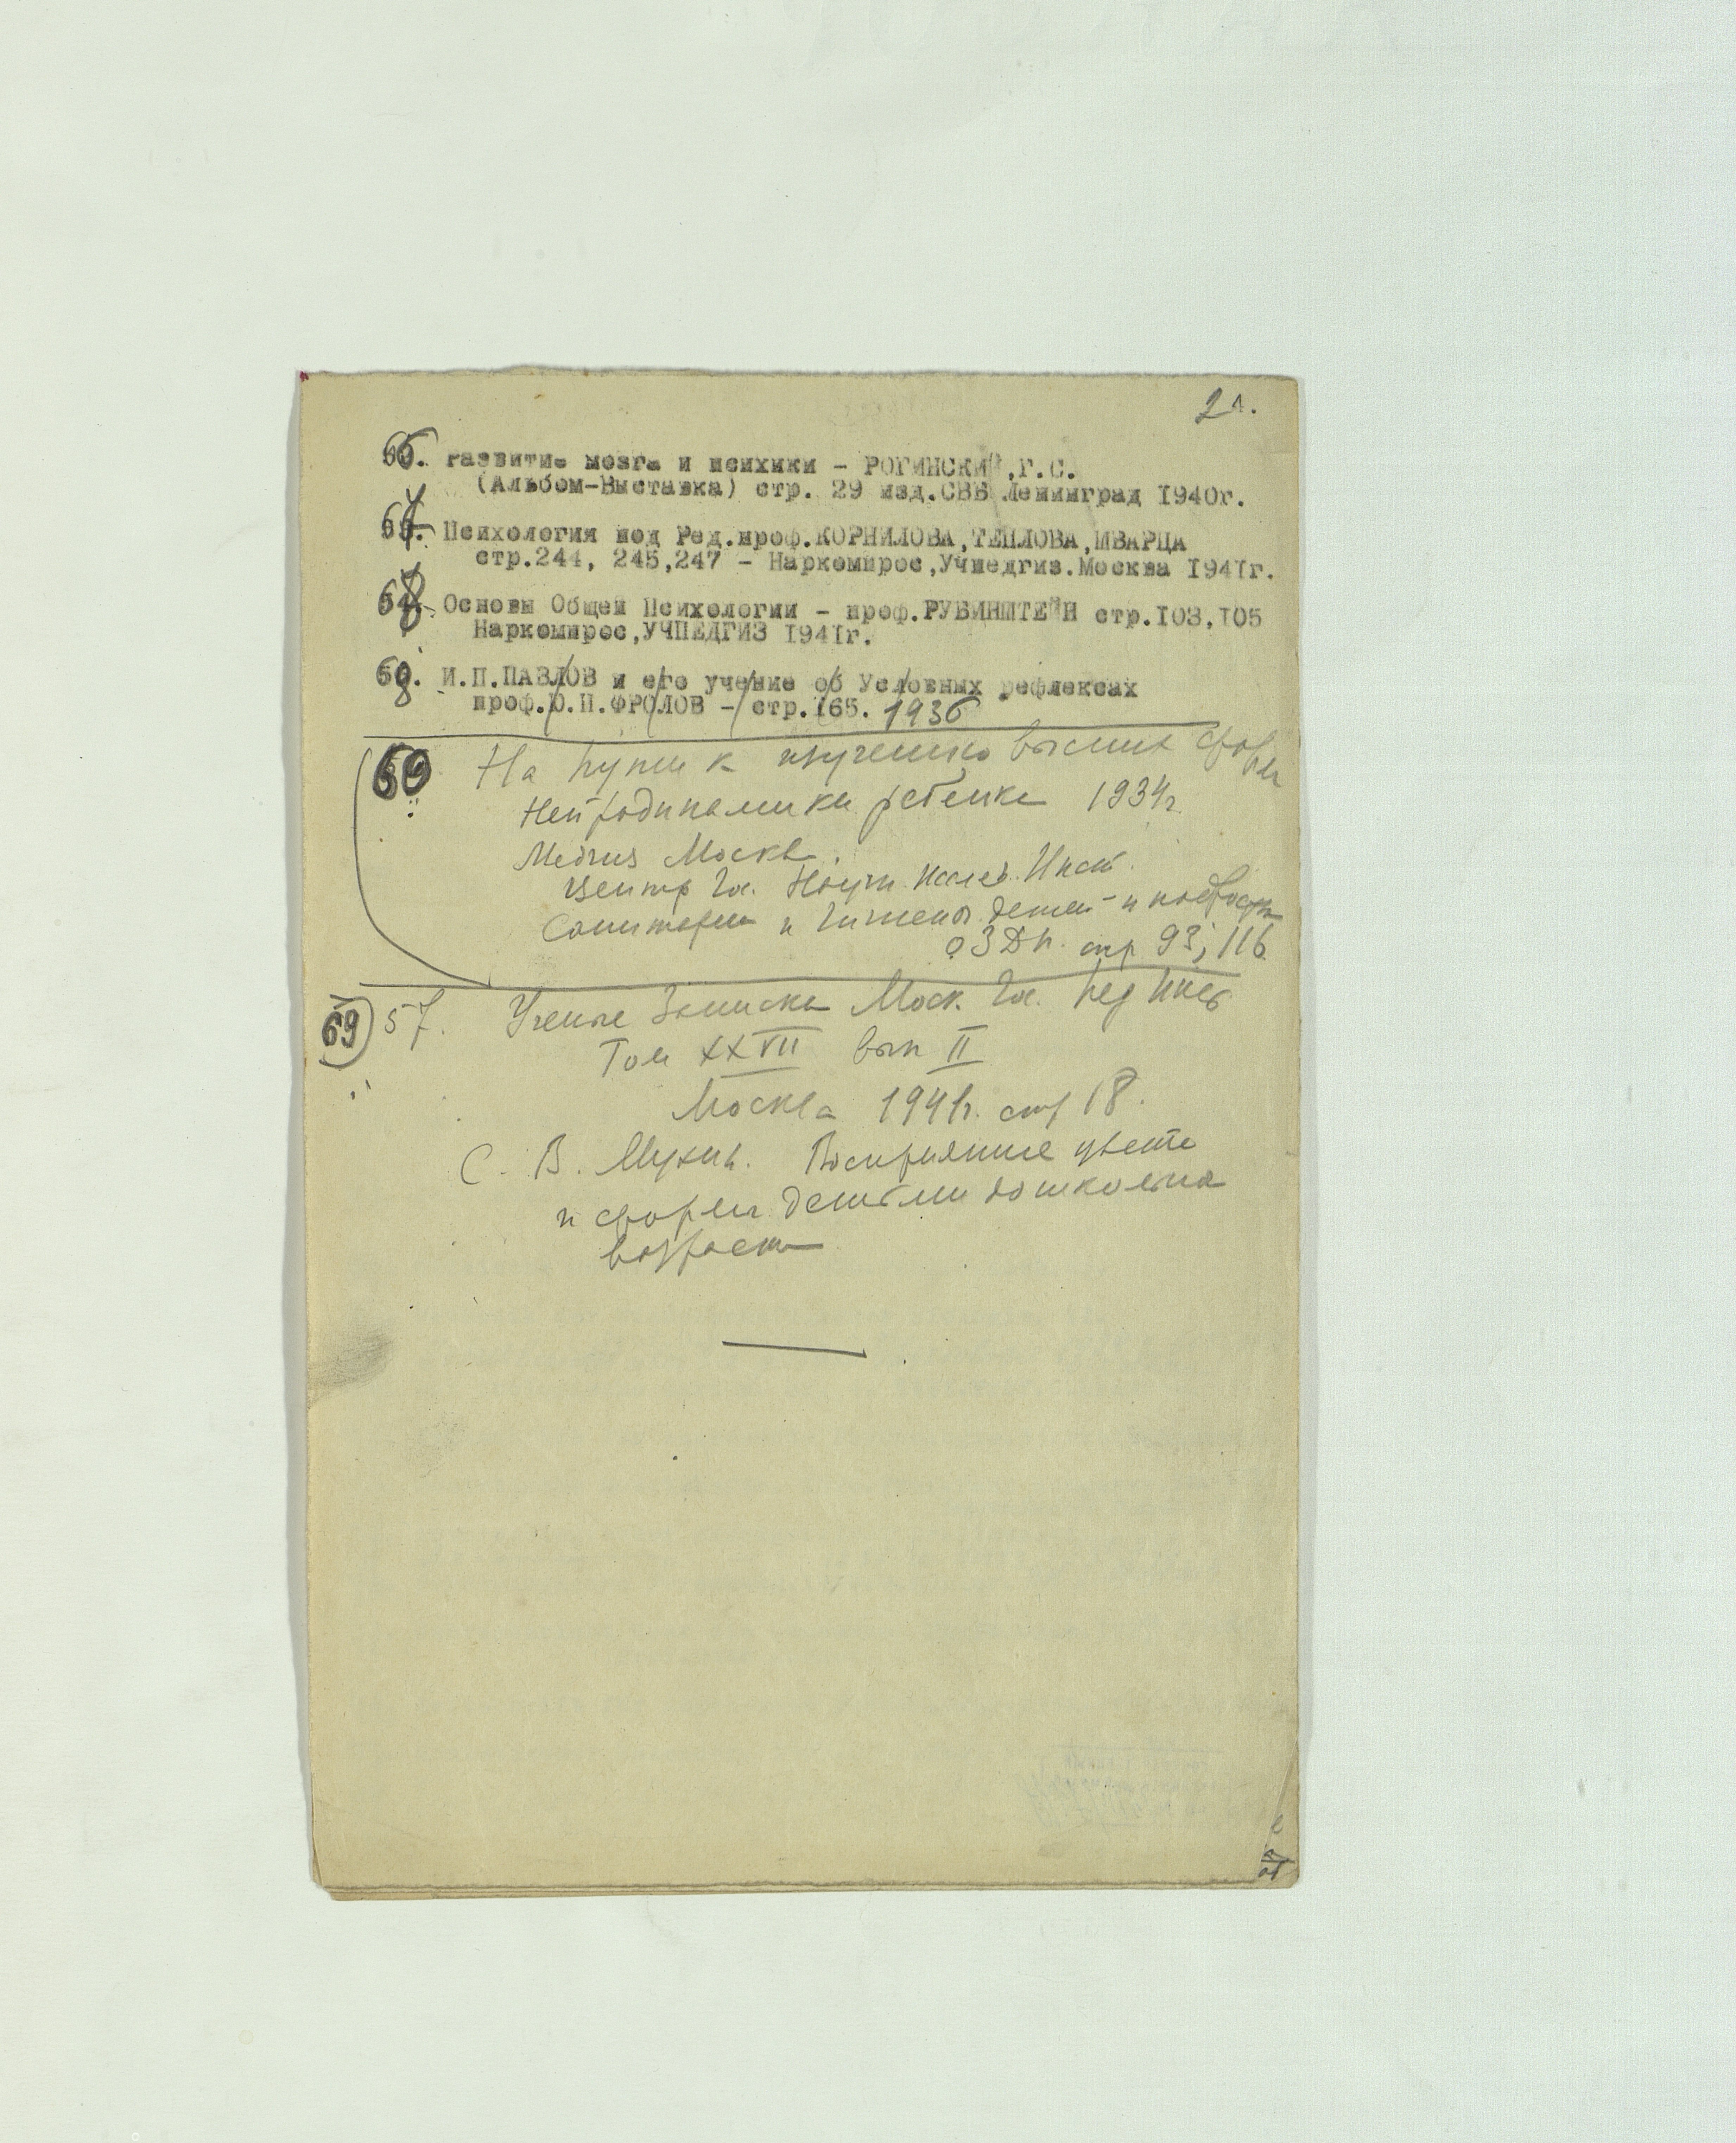 21.
66. Развитие мозга и психики - РОГИНСКИЙ,Г.С.
(Альбом-Выставка) стр. 29 изд.СВБ Ленинград 1940г.
67. Психология под Ред.проф.КОРНИЛОВА,ТЕПЛОВА,ШВАРЦА
стр.244, 245,247 - Наркомпрос,Учпедгиз.Москва 1941г.
68. Основы Общей Психологии - проф.РУБИНШТЕЙН стр.103,105
Наркомпрос,УЧПЕДГИЗ 1941г.
И.П.ПАВЛОВ и его учение об Условных рефлексах
проф.Ю.П.ФРОЛОВ - стр.165. 1936
На пути к изучению высших форм
Нейродинамики ребенка 1934г.
Медгиз Москва.
Центр Гос. Научн. Иссл. Инст.
Санитарии и Гигиены детей и подростк
ОЗДП. стр 93, 116
69 57. Ученые Записки Моск. Гос. Пед Инст
Том XXVII вып II
Москва 1941г. стр 18.
С. В. Мухин. Восприятие цвета
и формы детьми дошкольна
возраста